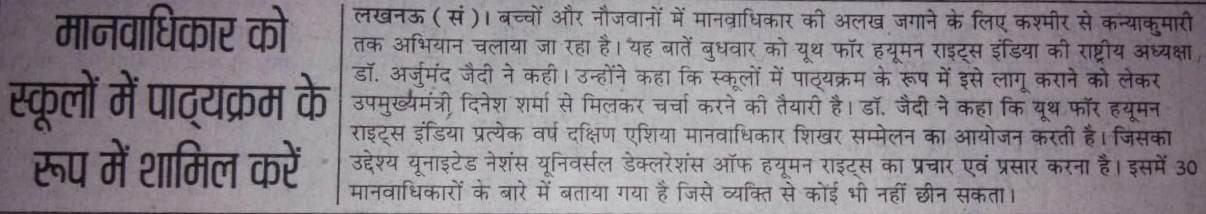 मानवाधिकार को
स्कूलों में पाठ्यक्रम के
रूप में शामिल करें
लखनऊ ( सं )। बच्चों और नौजवानों में मानवाधिकार की अलख जगाने के लिए कश्मीर से कन्याकुमारी
तक अभियान चलाया जा रहा है। यह बातें बुधवार को यूथ फॉर हयूमन राइट्स इंडिया की राष्ट्रीय अध्यक्षा,
डॉ. अर्जुमंद जैदी ने कही। उन्होंने कहा कि स्कूलों में पाठ्यक्रम के रूप में इसे लागू कराने को लेकर
उपमुख्यमंत्री दिनेश शर्मा से मिलकर चर्चा करने की तैयारी है। डॉ. जैदी ने कहा कि यूथ फॉर हयूमन
राइट्स इंडिया प्रत्येक वर्ष दक्षिण एशिया मानवाधिकार शिखर सम्मेलन का आयोजन करती है। जिसका
उद्देश्य यूनाइटेड नेशंस यूनिवर्सल डेक्लरेशंस ऑफ हयूमन राइट्स का प्रचार एवं प्रसार करना है। इसमें 30
मानवाधिकारों के बारे में बताया गया है जिसे व्यक्ति से कोई भी नहीं छीन सकता।